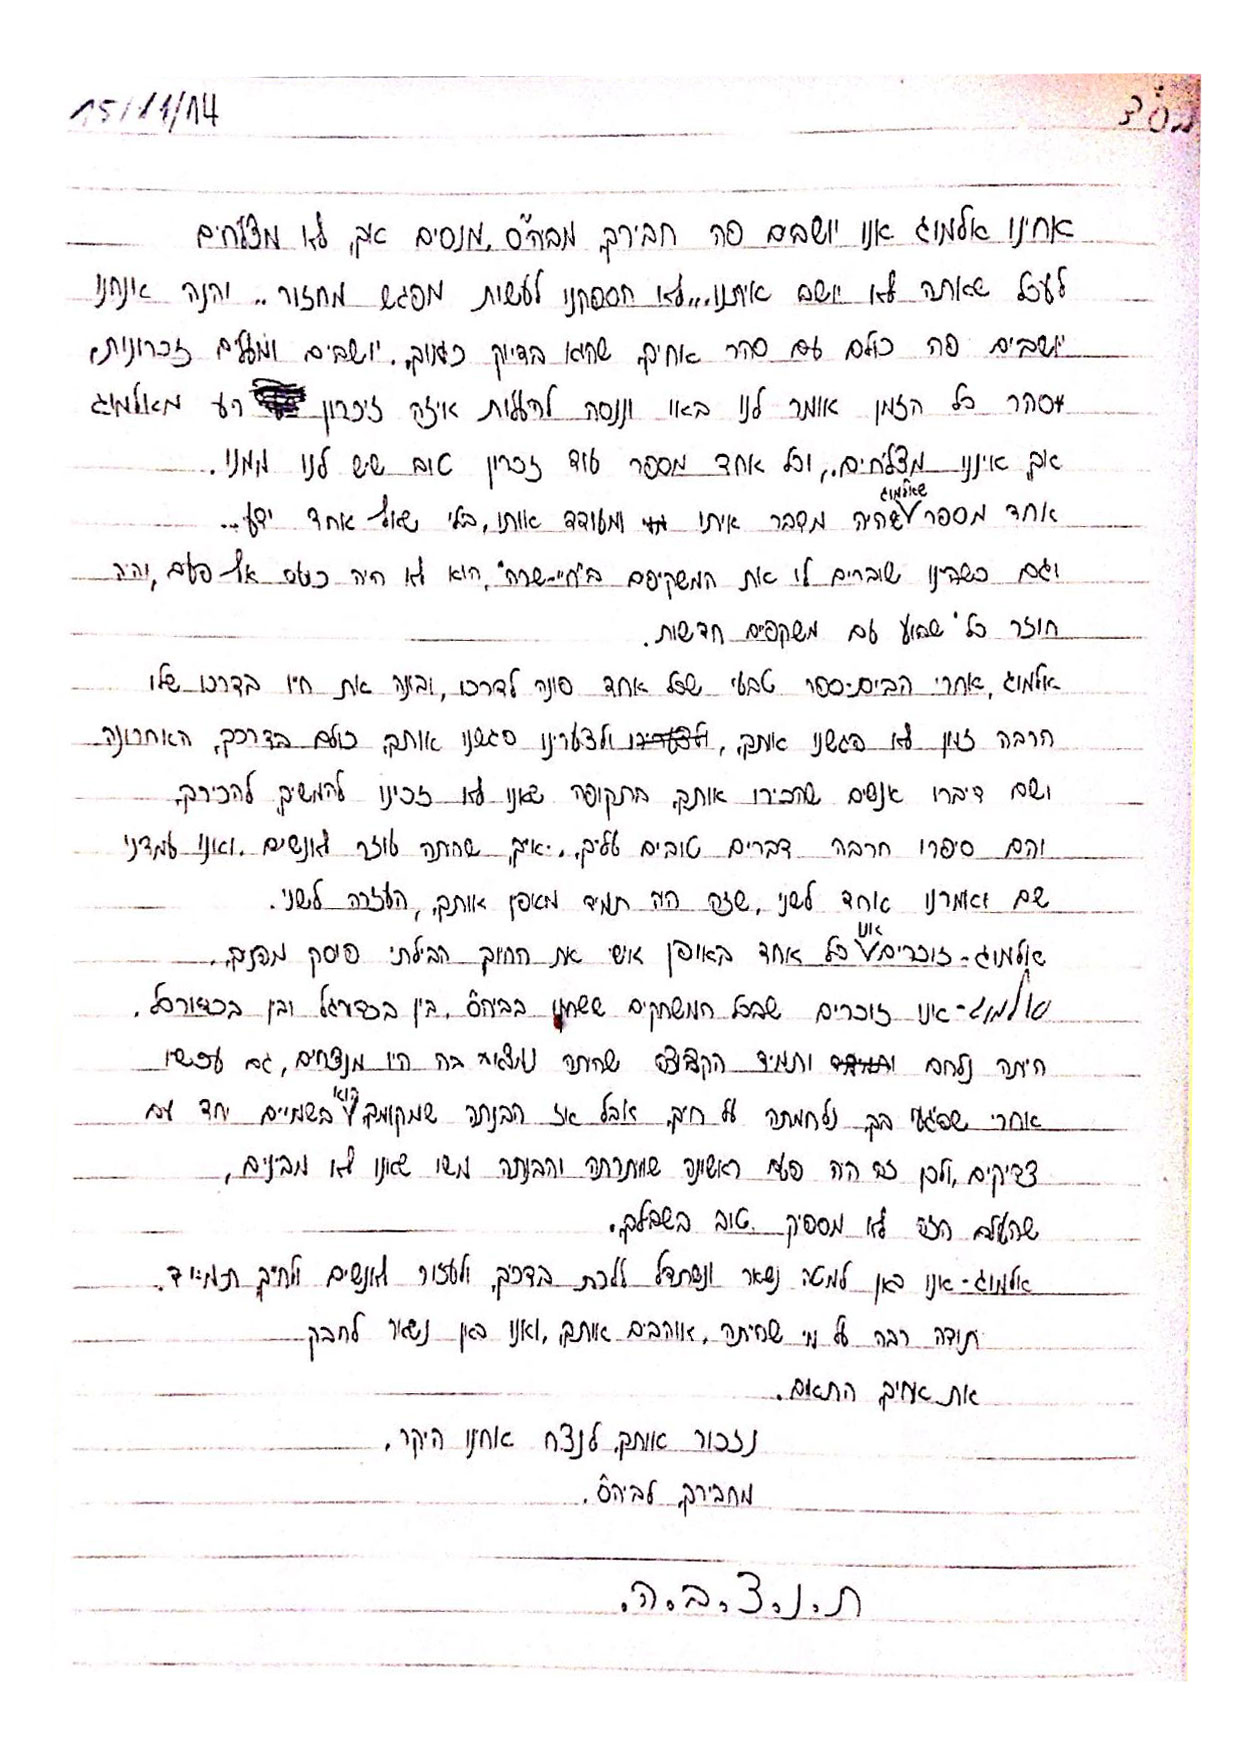 15/11/14
אחינו אלמוג אנו יושבים פה חביריך מביה"ס, מנסים אך לא מצלחים
לעכל שאתה לא יושב איתנו... לא הספקנו לעשות מפגש מחזור.. והנה אנחנו
יושבים פה כולם עם סהר אחיך, שהוא בדיוק כמוך.. יושבים ומעלים זכרונות,
וסהר כל הזמן אומר לנו בואו וננסה להעלות איזה זיכרון רע מאלמוג
אך איננו מצלחים.. וכל אחד מספר עוד זכרון טוב שיש לנו ממנו.
אחד מספר שאלמוג שהיה מדבר איתו ומעודד אותו, בלי שאף אחד ידע..
וגם כשהינו שוברים לו את המשקפים ב"חיי-שרה", הוא לא היה כועס אף פעם, והיה
חוזר כל שבוע עם משקפיים חדשות.
אלמוג, אחרי הבית-ספר טבעי שכל אחד פונה לדרכו, ובונה את חייו בדרכו שלו
הרבה זמן לא פגשנו אותך, ולצערינו פגשנו אותך כולם בדרכך האחרונה
ושם דיברו אנשים שהכירו אותך בתקופה שאנו לא זכינו להמשיך להכירך,
והם סיפרו הרבה דברים טובים עליך... איך שהיתה עוזר לאנשים. ואנו עמדנו
שם ואמרנו אחד לשני, שזה היה תמיד מאפין אותך, העזרה לשני.
אלמוג- זוכרים אנו כל אחד באופן אישי את החיוך הבילתי פוסק מפניך..
אלמוג- אנו זוכרים שבכל המשחקים ששחקנו בביה"ס, בין בכדורגל ובין בכדורסל,
היתה נלחם ותמיד הקבוצה שהיתה נמצא בה היו מנצחים, גם עכשיו
אחרי שפגעו בך, נלחמתה על חייך, אבל אז הבנתה שמקומך הוא בשמיים יחד עם
צדיקים, ולכן זה היה פעם ראשונה שויתרתה והבנתה משו שאנו לא מבינים,
שהעולם הזה לא מספיק טוב בשבילך.
אלמוג- אנו כאן למטה נשאר ונשתדל ללכת בדרכך, ולעזור לאנשים ולחייך תמיד.
תודה רבה על מי שהיתה, אוהבים אותך, ואנו כאן נשאר לחבק
את אחיך התאום.
נזכור אותך לנצח אחנו היקר,
מחביריך לביה"ס.
ת.נ.צ.ב.ה.